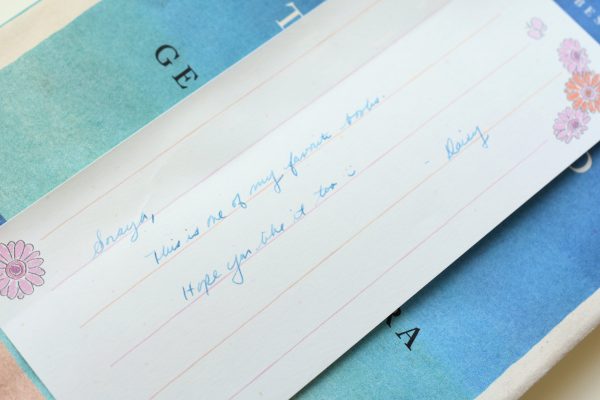 T
BES
GE
O
Soraya,
This is one of my favorite books.
Hope you like it too :
- Daisy
RA